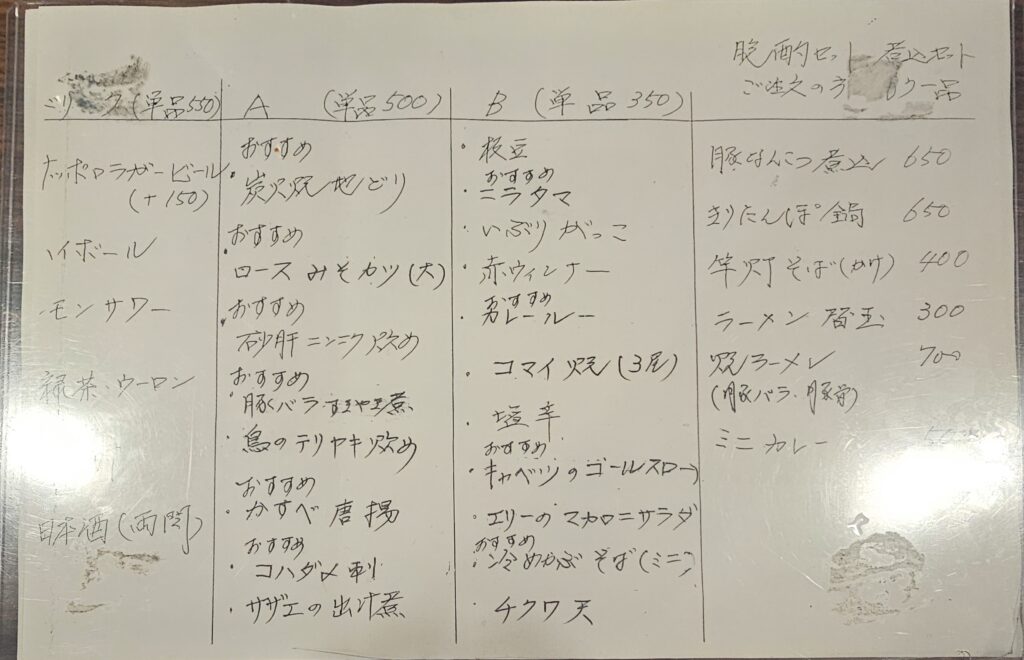 晩酌セット 煮込セット
ご注文の方 一品
ドリンク(単品550)
サッポロラガービール
(+150)
ハイボール
モンサワー
緑茶・ウーロン
日本酒(両関)
A (単品500)
おすすめ
・炭火焼地どり
おすすめ
・ロースみそカツ(大)
おすすめ
・砂肝ニンニク炒め
おすすめ
豚バラ 煮
・鳥のテリヤキ炒め
おすすめ
・かすべ唐揚
おすすめ
・コハダ〆刺
・サザエの出汁煮
B (単品350)
・枝豆
おすすめ
・ニラタマ
・いぶりがっこ
・赤ウィンナー
おすすめ
・カレールー
・コマイ焼(3尾)
・塩辛
おすすめ
・キャベツのゴールスロー
・エリーのマカロニサラダ
おすすめ
・冷めかぶそば(ミニ)
・チクワ天
豚なんこつ煮込 650
きりたんぽ鍋 650
竿灯そば(かけ) 400
ラーメン替玉 300
焼ラーメン 700
(豚バラ・豚骨)
ミニカレー